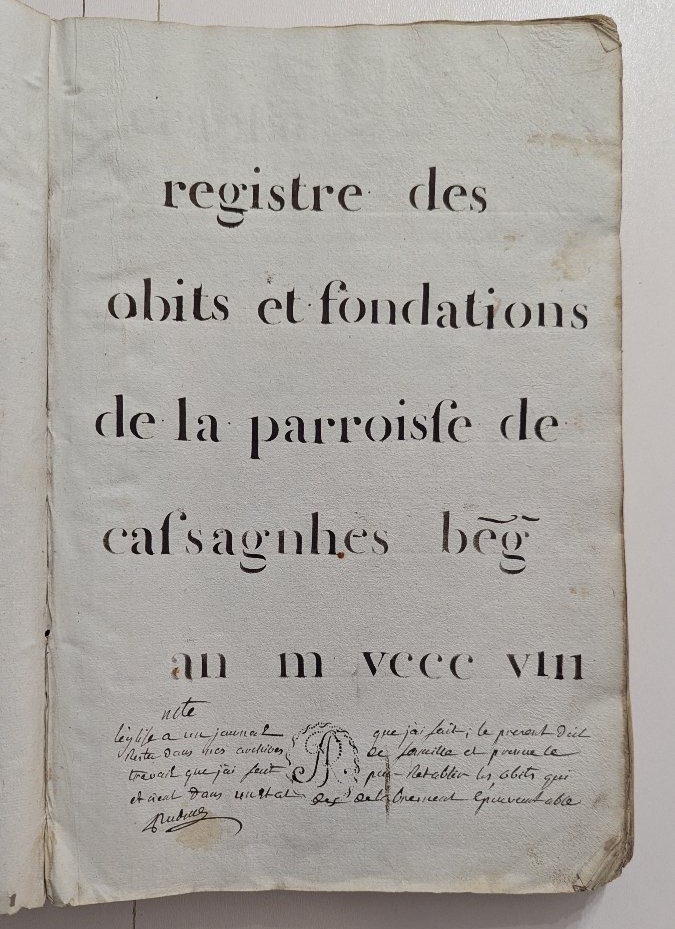 registre des
obits et fondations
de la parroisse de
cassagnhes beg̃
an m vcccc viii
note
l'eglise a un journal que j'ai fait, le present doit
rester dans mes archives de famille et prouve le
travail que j'ai fait pour retablir les obits qui
etaient dans un etat de delabrement epouvantable